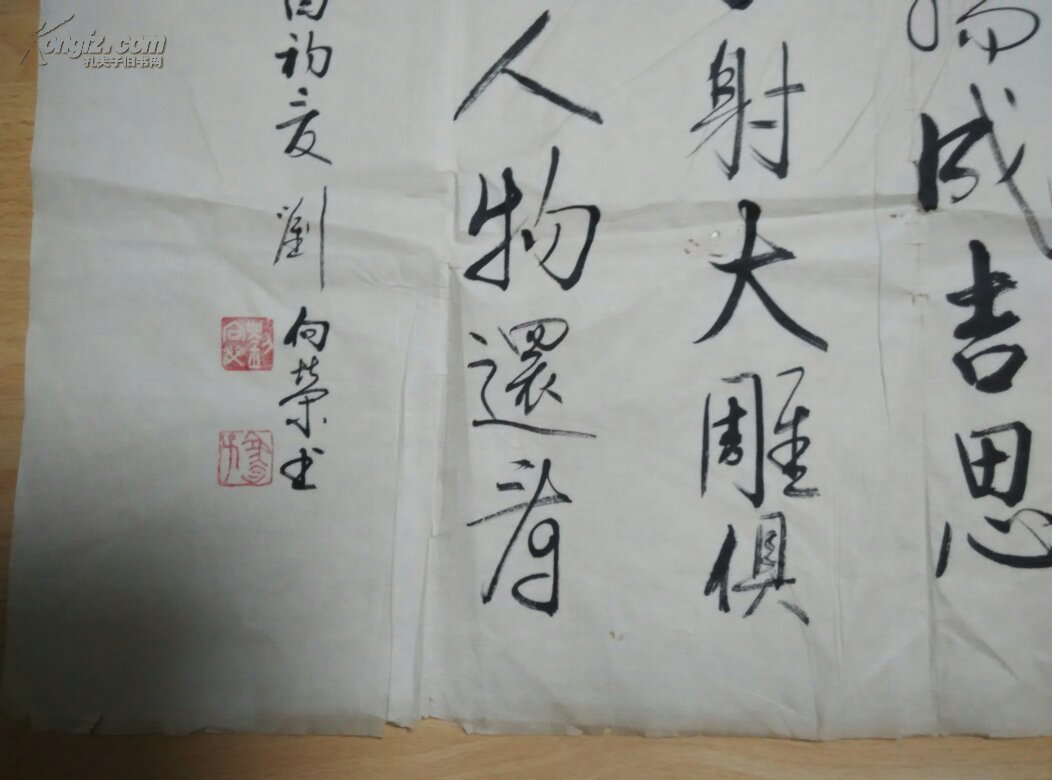 成吉思
射大雕俱
人物還看
初夏劉向榮书
Kongfz.com
孔夫子旧书网